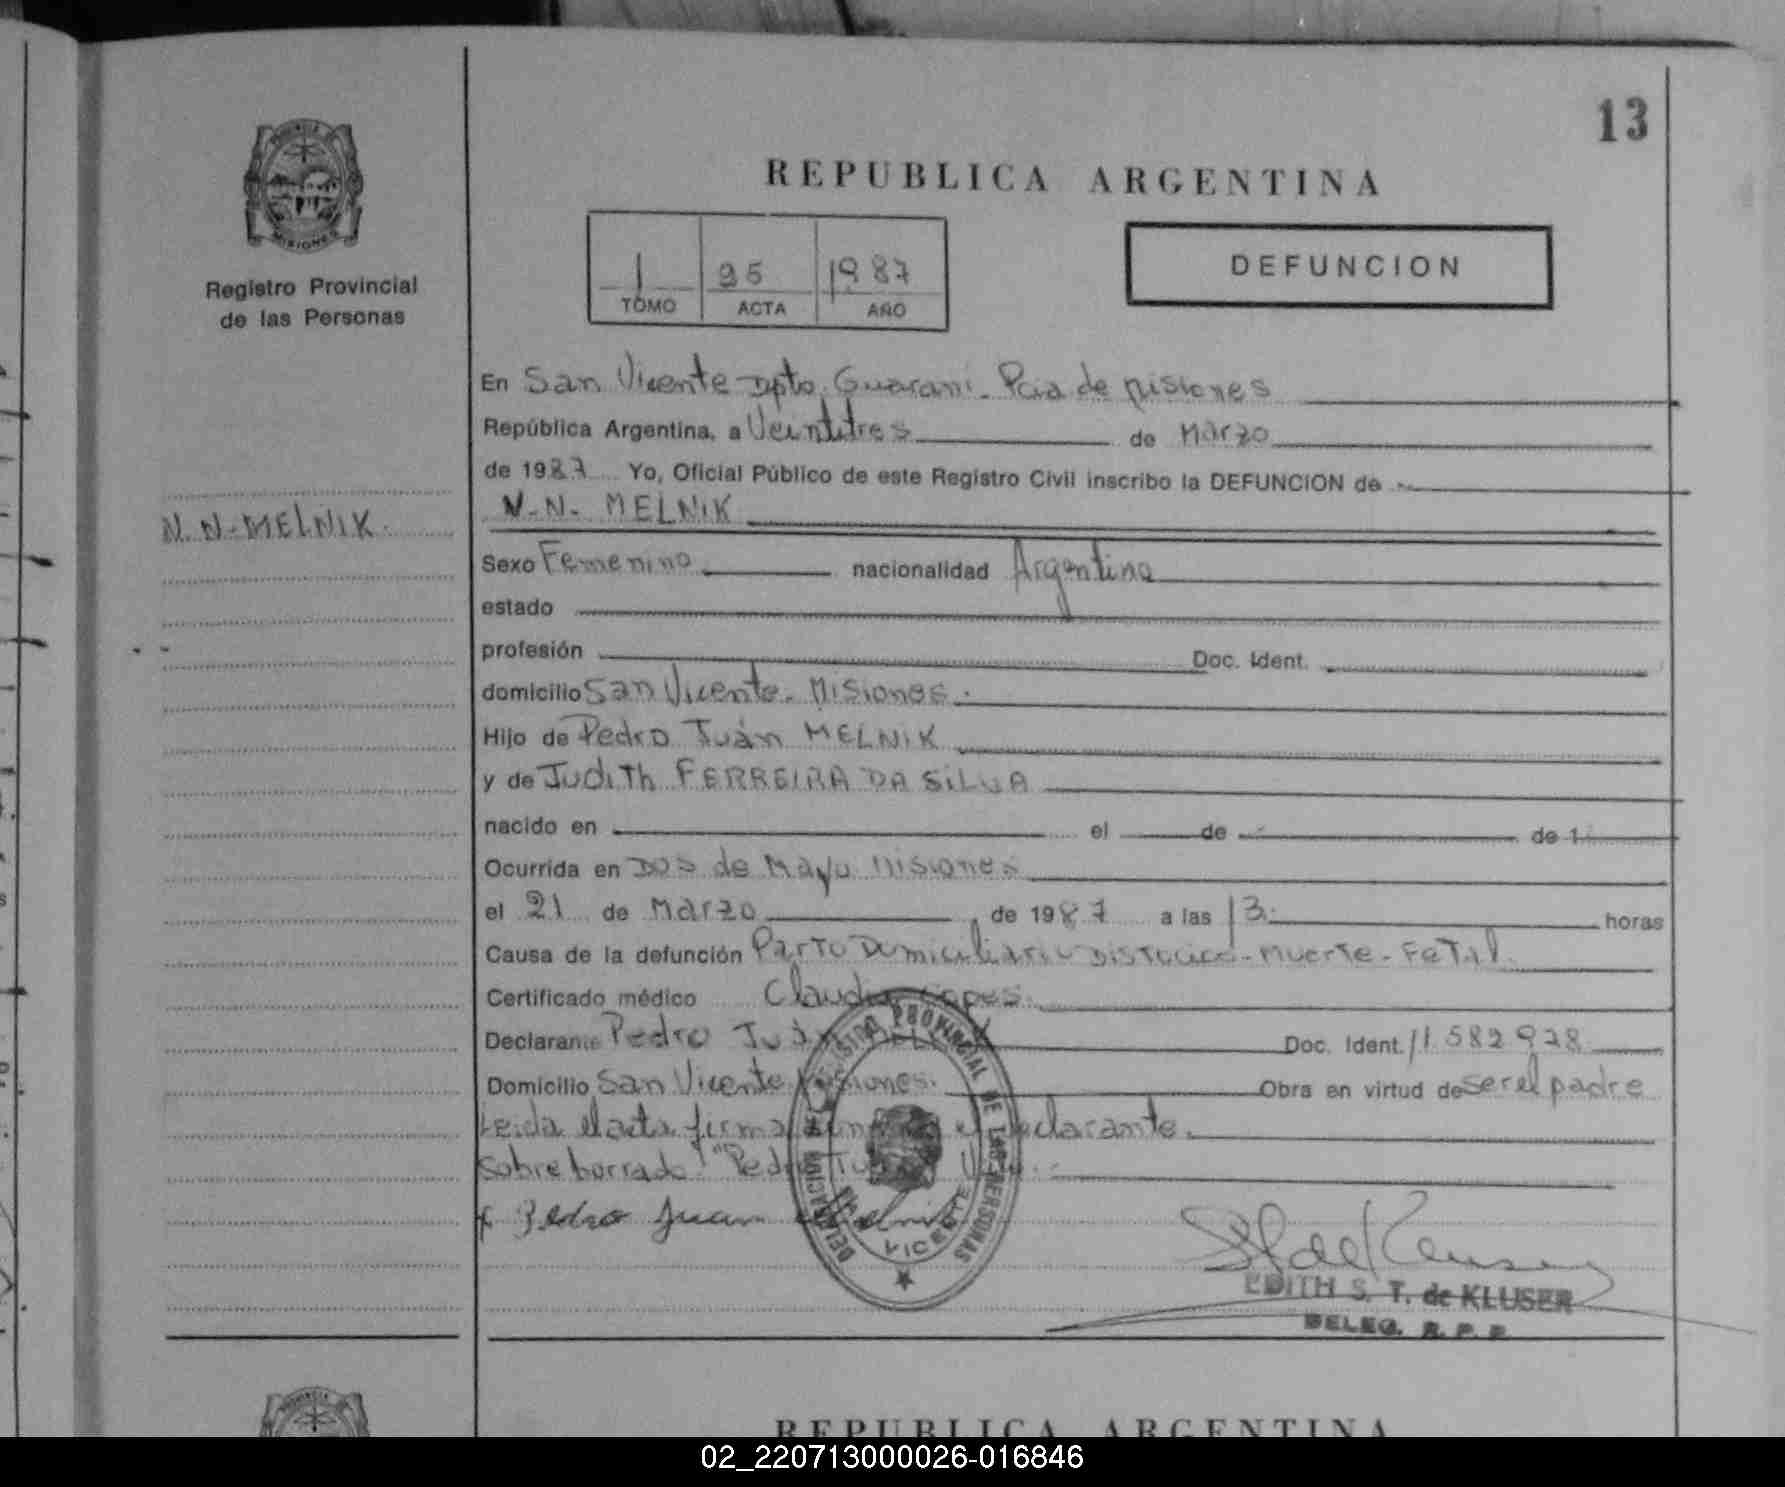 13
PROVINCIA
MISIONES
Registro Provincial
de las Personas
REPUBLICA ARGENTINA
1 95 1987
TOMO ACTA AÑO
DEFUNCION
En San Vicente Dpto. Guaraní - Pcia de Misiones
República Argentina, a Veintitres de Marzo
de 1987 Yo, Oficial Público de este Registro Civil inscribo la DEFUNCION de
N.N-MELNIK.
N.N- MELNIK
Sexo Femenino nacionalidad Argentina
estado
profesión Doc. Ident.
domicilio San Vicente - Misiones.
Hijo de Pedro Juán MELNIK
y de Judith FERREIRA DA SILVA
nacido en el de de 1
Ocurrida en Dos de Mayo Misiones
el 21 de Marzo de 1987 a las 13. horas
Causa de la defunción Parto Domiciliario Distocico - Muerte - Fetal.
Certificado médico Claudio
Declarante Pedro Juán Doc. Ident. 11582928
Domicilio San Vicente Misiones. Obra en virtud de ser el padre
Leida el acta firma el declarante.
Sobre borrado: "Pedro
Pedro Juan Melnik
REGISTRO PROVINCIAL DE LAS PERSONAS
DELEGACION
SAN VICENTE
EDITH S. T. de KLUSER
DELEG. R. P. P.
REPUBLICA ARGENTINA
02_220713000026-016846